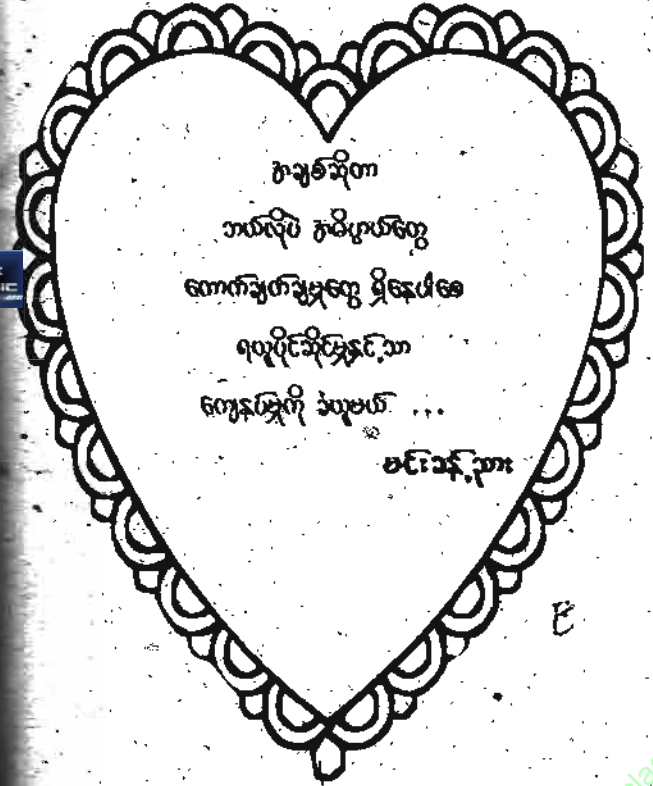 အချစ်ဆိုတာ
ဘယ်လိုပဲ အဓိပ္ပာယ်တွေ
ကောက်ချက်ချမှုတွေ ရှိနေပါစေ
ရယူပိုင်ဆိုင်မှုနှင့်သာ
ကျေနပ်မှုကို ခံယူမယ် ...
မင်းခန့်ညား